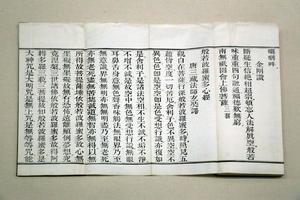 金剛讚
斷疑生信絕相超宗頓忘人法解眞空般若
味重重四句融通福德歎無窮
南無祇園會上佛菩薩
般若波羅蜜多心經
唐三藏法師玄奘譯
觀自在菩薩行深般若波羅蜜多時照見五
蘊皆空度一切苦厄舍利子色不異空空不異
色色即是空空即是色受想行識亦復如
是舍利子是諸法空相不生不滅不垢不淨
不增不減是故空中無色無受想行識無眼
耳鼻舌身意無色聲香味觸法無眼界乃至
無意識界無無明亦無無明盡乃至無老死
亦無老死盡無苦集滅道無智亦無得以無
所得故菩提薩埵依般若波羅蜜多故心無
罣礙無罣礙故無有恐怖遠離顚倒夢想究
竟涅槃三世諸佛依般若波羅蜜多故得阿
大神咒是大明咒是無上咒是無等等咒能